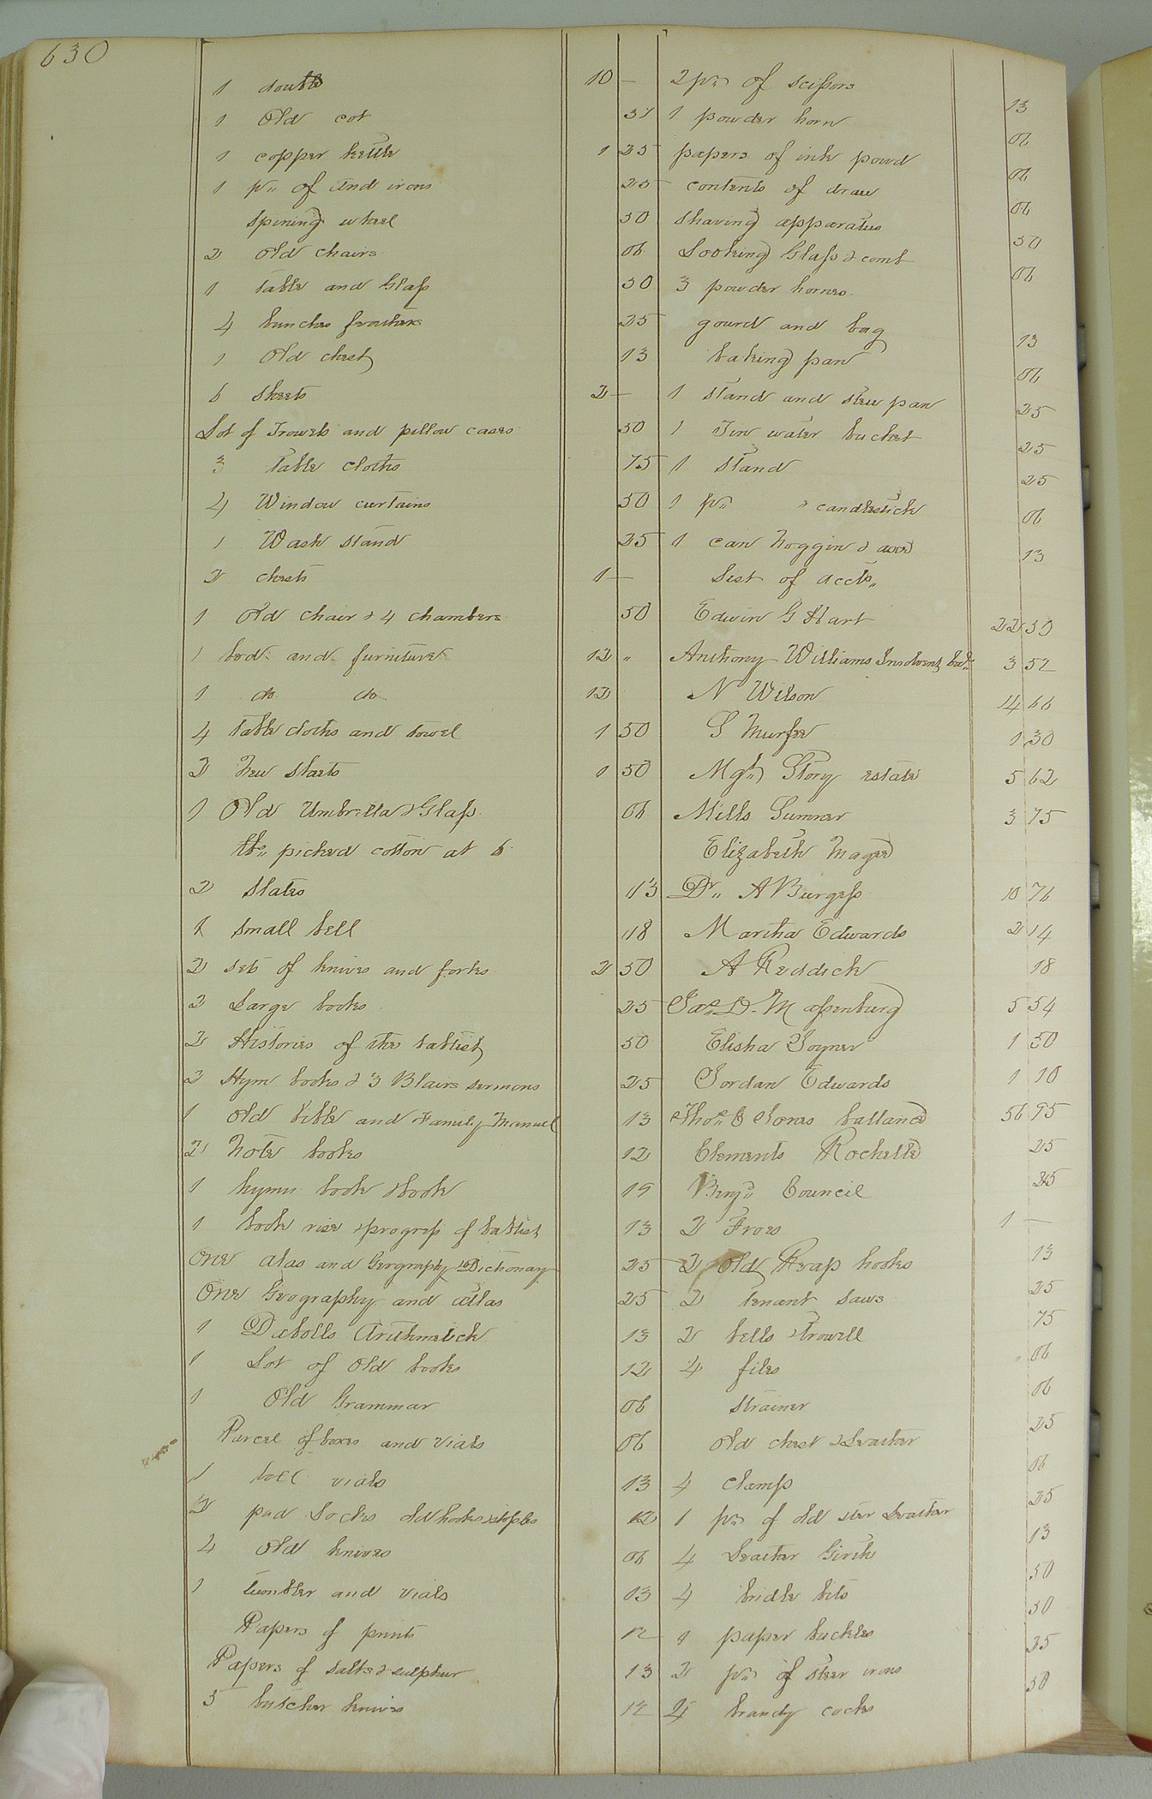 630
1 double 10 —
1 Old cot 37
1 copper kettle 1 25
1 pr of And irons 25
spining wheel 50
2 Old chairs 06
1 table and Glass 50
4 bunches 25
1 Old chest 13
6 Sheets 2 —
Lot of Trowels and pillow cases 50
3 table cloths 75
4 Window curtains 50
1 Wash stand 25
2 chests 1 —
1 Old chair & 4 chambers 50
1 bed and furniture 12 "
1 do do 12
4 table cloths and towel 1 50
2 New Sheets 1 50
1 Old Umbrella & Glass 06
lbs picked cotton at 6
2 Slates 13
1 small bell 18
2 sets of knives and forks 2 50
2 Large books 25
2 Histories of the babtist 50
2 Hym books & 3 Blairs sermons 25
1 Old bible and Family Manuel 13
2 Note books 12
1 hymn book & book 19
1 book rise & progress of babtist 13
One atlas and Geography & Dictionary 25
One Geography and atlas 25
1 Dabolls Arithmetick 13
1 Lot of Old books 12
1 Old Grammar 06
Parcel of boxes and vials 06
1 vials 13
2 pad Locks old hooks & 12
4 Old knives 06
1 tumbler and vials 13
Papers of prints 12
Papers of salts & sulphur 13
5 butcher knives 12
2 prs of scissors 13
1 powder horn 06
papers of ink powd 06
contents of draw 06
shaving apparatus 50
Looking Glass & comb 06
3 powder hornes
gourd and bag 13
baking pan 06
1 stand and stew pan 25
1 Tin water bucket 25
1 stand 25
1 pr candlestick 06
1 can Noggin & 13
List of accts
Edwin G Hart 22 50
Anthony Williams Insolvent 3 52
N Wilson 14 66
S Murfee 1 30
Story estate 5 62
Mills Sumner 3 75
Elizabeth Magee
Dr A Burgess 10 76
Martha Edwards 2 14
A Reddick 18
Jas D. Massenburg 5 54
Elisha Joyner 1 50
Jordan Edwards 1 10
Thos Jones ballance 56 95
Clements Rochelle 25
Benjn Council 25
2 Frows 1 —
2 Old Reap hooks 13
2 tenant saws 25
2 bells & trowell 75
4 files 06
strainer 06
old chest & Leather 25
4 clamps 06
1 pr of old Leather 25
4 Leather Girths 13
4 bridle bits 50
1 paper buckles 50
2 prs of steer irons 25
4 brandy cocks 50